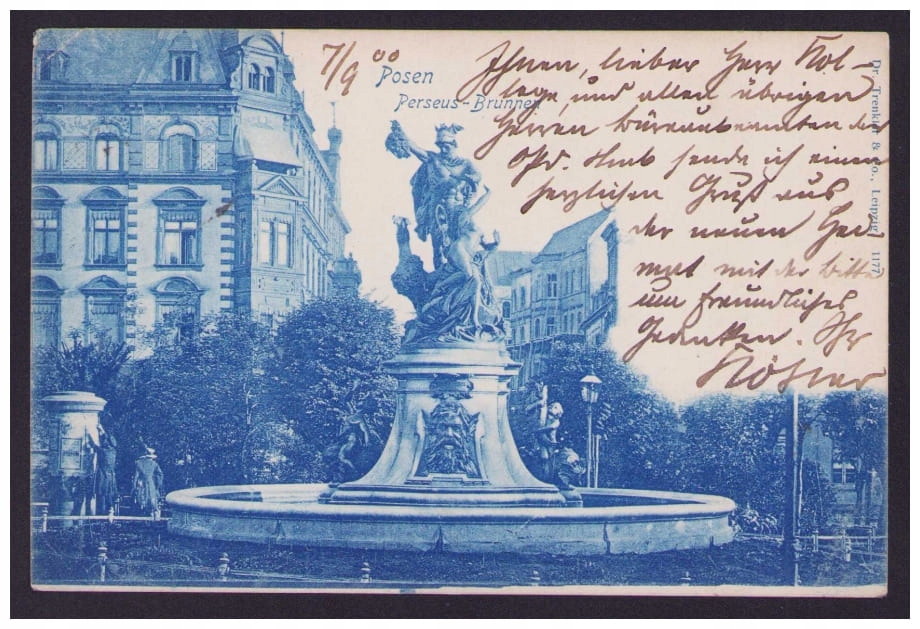 7/9 00
Posen
Perseus-Brunnen
Ihnen, lieber Herr Kol-
lege, und allen übrigen
Herren Büreaubeamten der
sende ich einen
herzlichen Gruß aus
der neuen Hei
mat mit der Bitte
um freundliches
Gedenken. Ihr
Köhler
Dr. Trenkler & Co., Leipzig. 1177